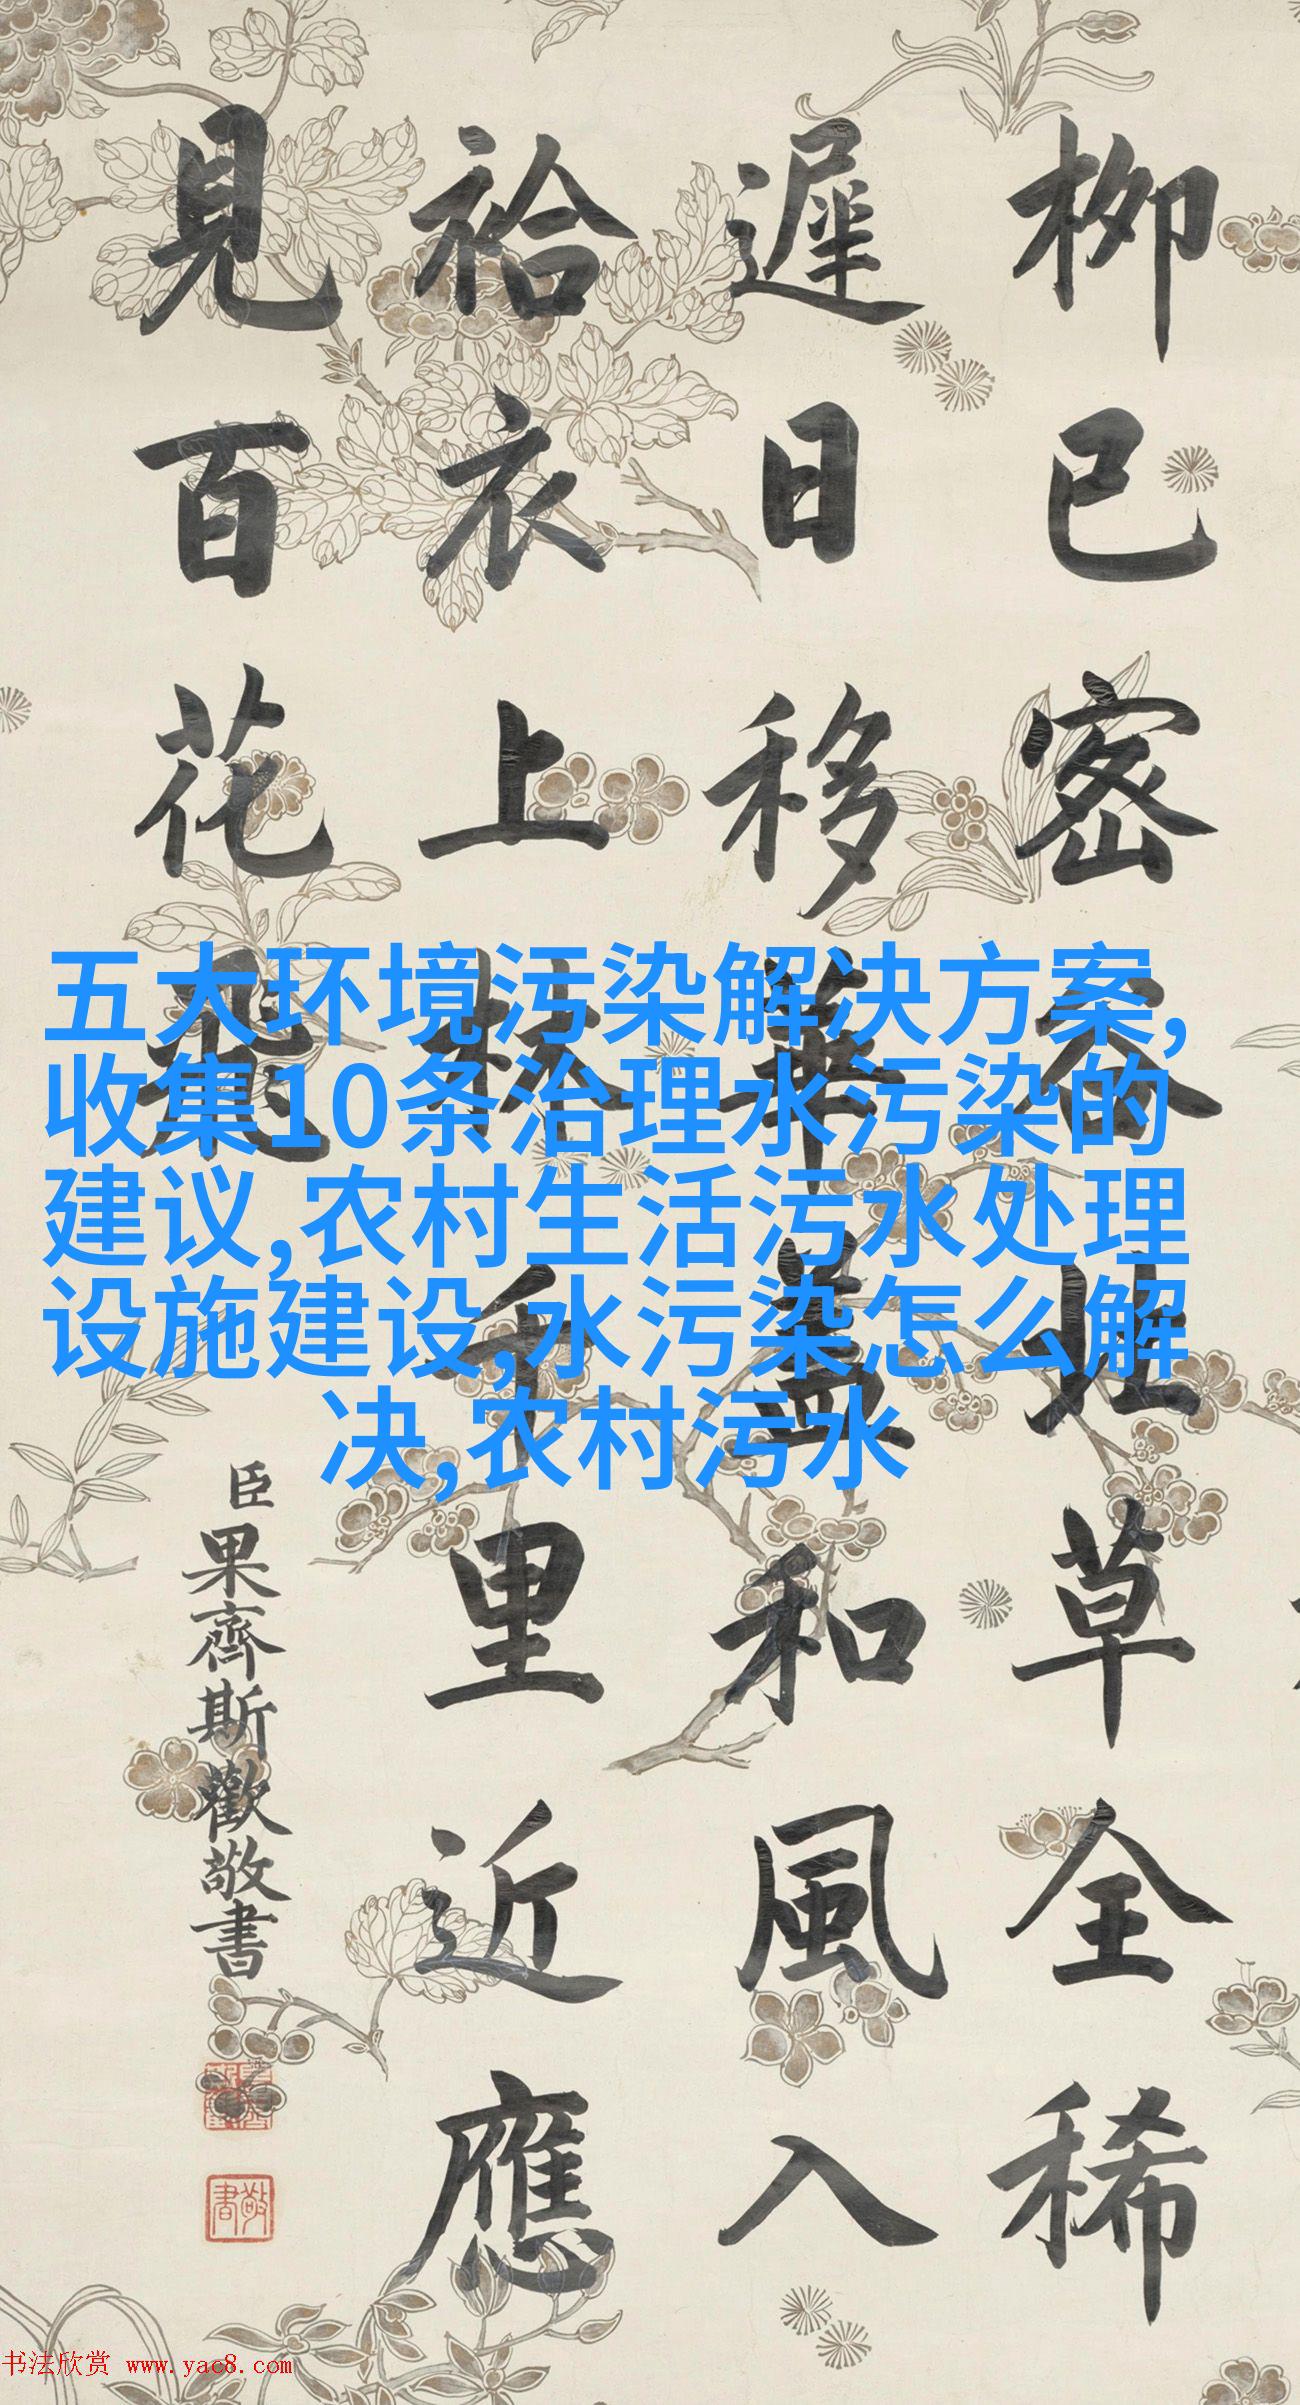 柳已密春壯草全稀
遲日移華蓋和風入
袷衣上林千里近應
見百花飛
臣果齊斯歡敬書
敬書
五大环境污染解决方案,
收集10条治理水污染的
建议,农村生活污水处理
设施建设,水污染怎么解
决,农村污水
书法欣赏 www.yac8.com